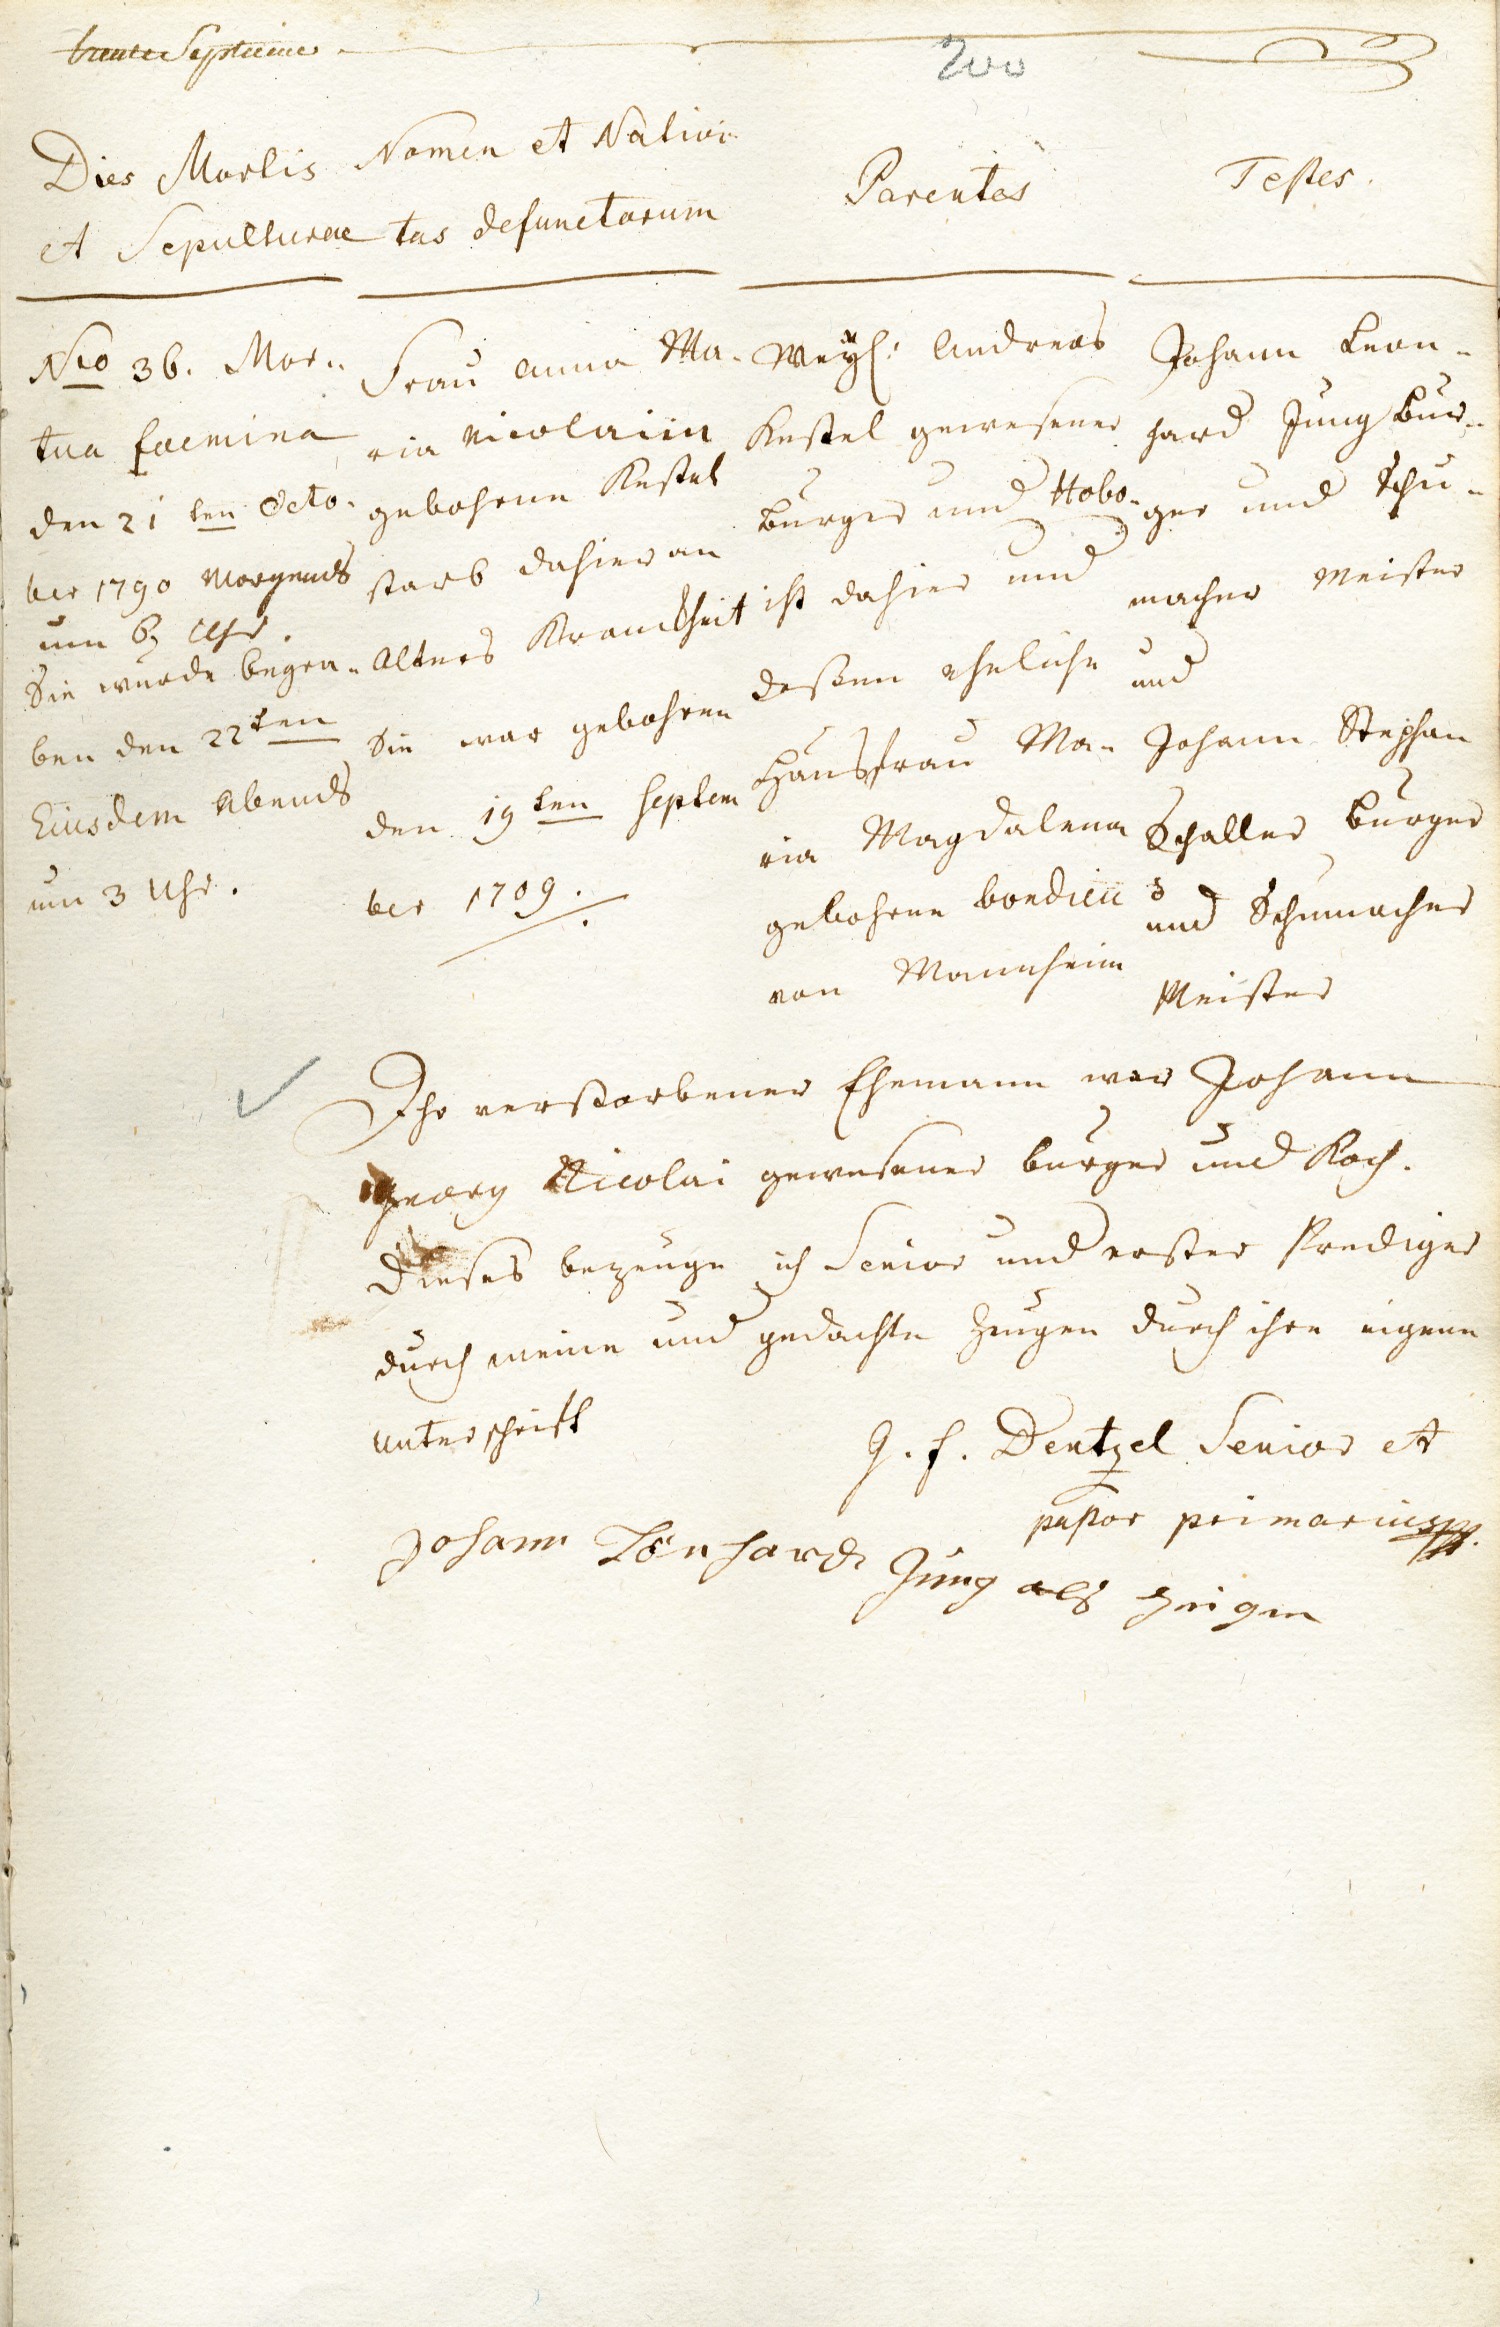 trente Septieme
200
Dies Mortis
et Sepulturae
Nomen et Nativi-
tas defunctorum
Parentes
Testes.
Nro 36. Mor-
tua foemina
den 21ten Octo-
ber 1790 Morgends
um Uhr.
Sie wurde begra-
ben den 22ten
Eiusdem Abends
um 3 Uhr.
Frau Anna Ma-
ria Nicolaiin
gebohrne Kestel
starb dahier an
Alters Kranckheit
Sie war gebohren
den 19ten Septem
ber 1709.
Weyl: Andreas
Kestel gewesener
burger und Hobo-
ist dahier und
deßen eheliche
Hausfrau Ma-
ria Magdalena
gebohrne bondieu
von Mannheim
Johann Leon-
hard Jung Bur-
ger und Schu-
macher Meister
und
Johann Stephan
Schaller Burger
und Schumacher
Meister
Ihr verstorbener Ehemann war Johann
Georg Nicolai gewesener burger und Koch.
Dieses bezeuge ich Senior und erster Prediger
durch meine und gedachte Zeugen durch ihre eigene
Unterschrift
G. F. Dentzel Senior et
pastor primarius
Johann Lönhard Jung als Zeigen